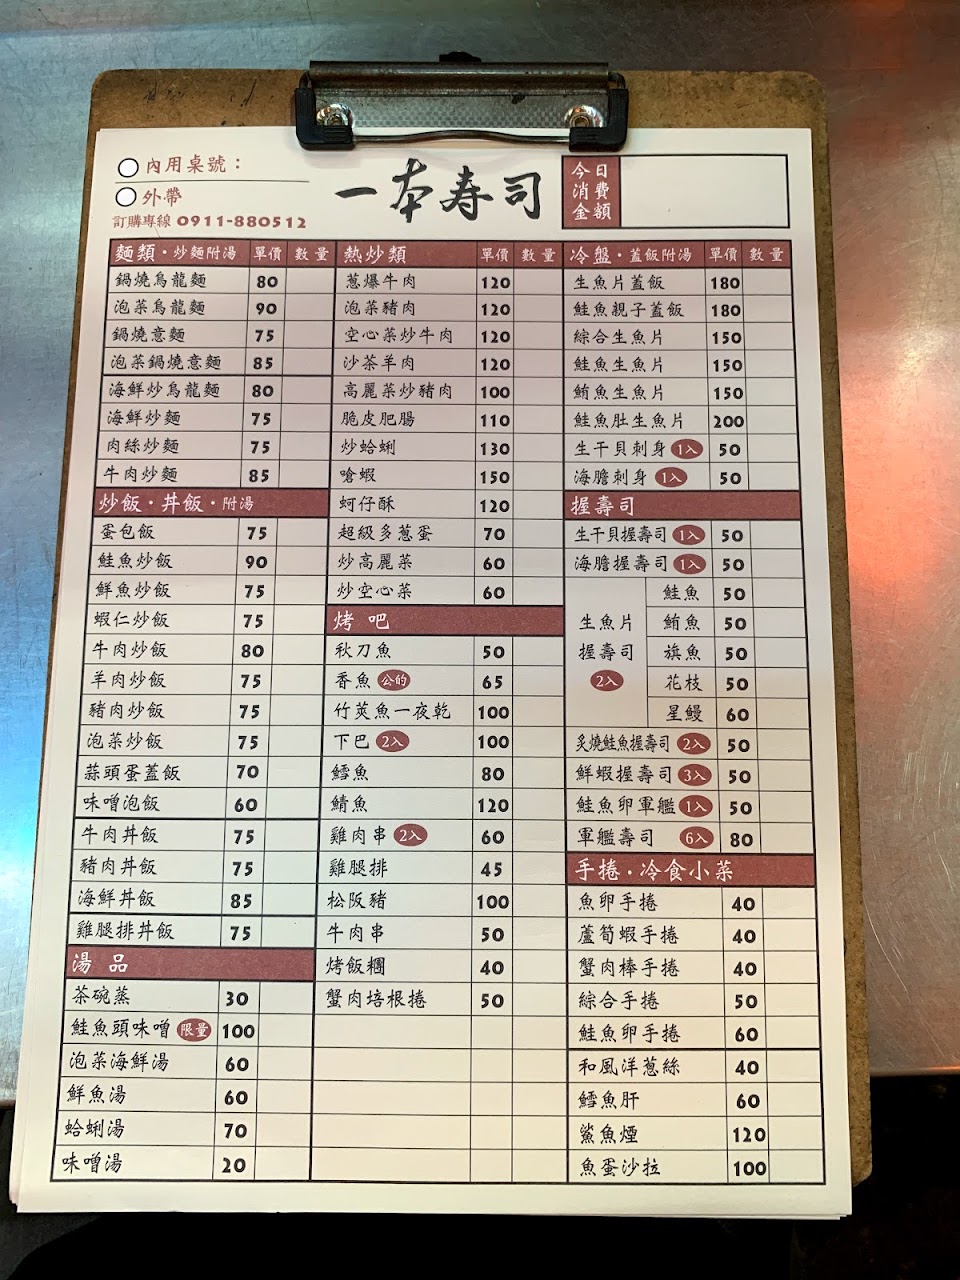 內用桌號：
外帶
訂購專線 0911-880512
一本寿司
今日
消費
金額
麵類·炒麵附湯 單價 數量
鍋燒烏龍麵 80
泡菜烏龍麵 90
鍋燒意麵 75
泡菜鍋燒意麵 85
海鮮炒烏龍麵 80
海鮮炒麵 75
肉絲炒麵 75
牛肉炒麵 85
炒飯·丼飯·附湯
蛋包飯 75
鮭魚炒飯 90
鮮魚炒飯 75
蝦仁炒飯 75
牛肉炒飯 80
羊肉炒飯 75
豬肉炒飯 75
泡菜炒飯 75
蒜頭蛋蓋飯 70
味噌泡飯 60
牛肉丼飯 75
豬肉丼飯 75
海鮮丼飯 85
雞腿排丼飯 75
湯 品
茶碗蒸 30
鮭魚頭味噌 限量 100
泡菜海鮮湯 60
鮮魚湯 60
蛤蜊湯 70
味噌湯 20
熱炒類 單價 數量
蔥爆牛肉 120
泡菜豬肉 120
空心菜炒牛肉 120
沙茶羊肉 120
高麗菜炒豬肉 100
脆皮肥腸 110
炒蛤蜊 130
嗆蝦 150
蚵仔酥 120
超級多蔥蛋 70
炒高麗菜 60
炒空心菜 60
烤 吧
秋刀魚 50
香魚 公的 65
竹莢魚一夜乾 100
下巴 2入 100
鱈魚 80
鯖魚 120
雞肉串 2入 60
雞腿排 45
松阪豬 100
牛肉串 50
烤飯糰 40
蟹肉培根捲 50
冷盤·蓋飯附湯 單價 數量
生魚片蓋飯 180
鮭魚親子蓋飯 180
綜合生魚片 150
鮭魚生魚片 150
鮪魚生魚片 150
鮭魚肚生魚片 200
生干貝刺身 1入 50
海膽刺身 1入 50
握壽司
生干貝握壽司 1入 50
海膽握壽司 1入 50
生魚片
握壽司
2入
鮭魚 50
鮪魚 50
旗魚 50
花枝 50
星鰻 60
炙燒鮭魚握壽司 2入 50
鮮蝦握壽司 3入 50
鮭魚卵軍艦 1入 50
軍艦壽司 6入 80
手捲·冷食小菜
魚卵手捲 40
蘆筍蝦手捲 40
蟹肉棒手捲 40
綜合手捲 50
鮭魚卵手捲 60
和風洋蔥絲 40
鱈魚肝 60
鯊魚煙 120
魚蛋沙拉 100